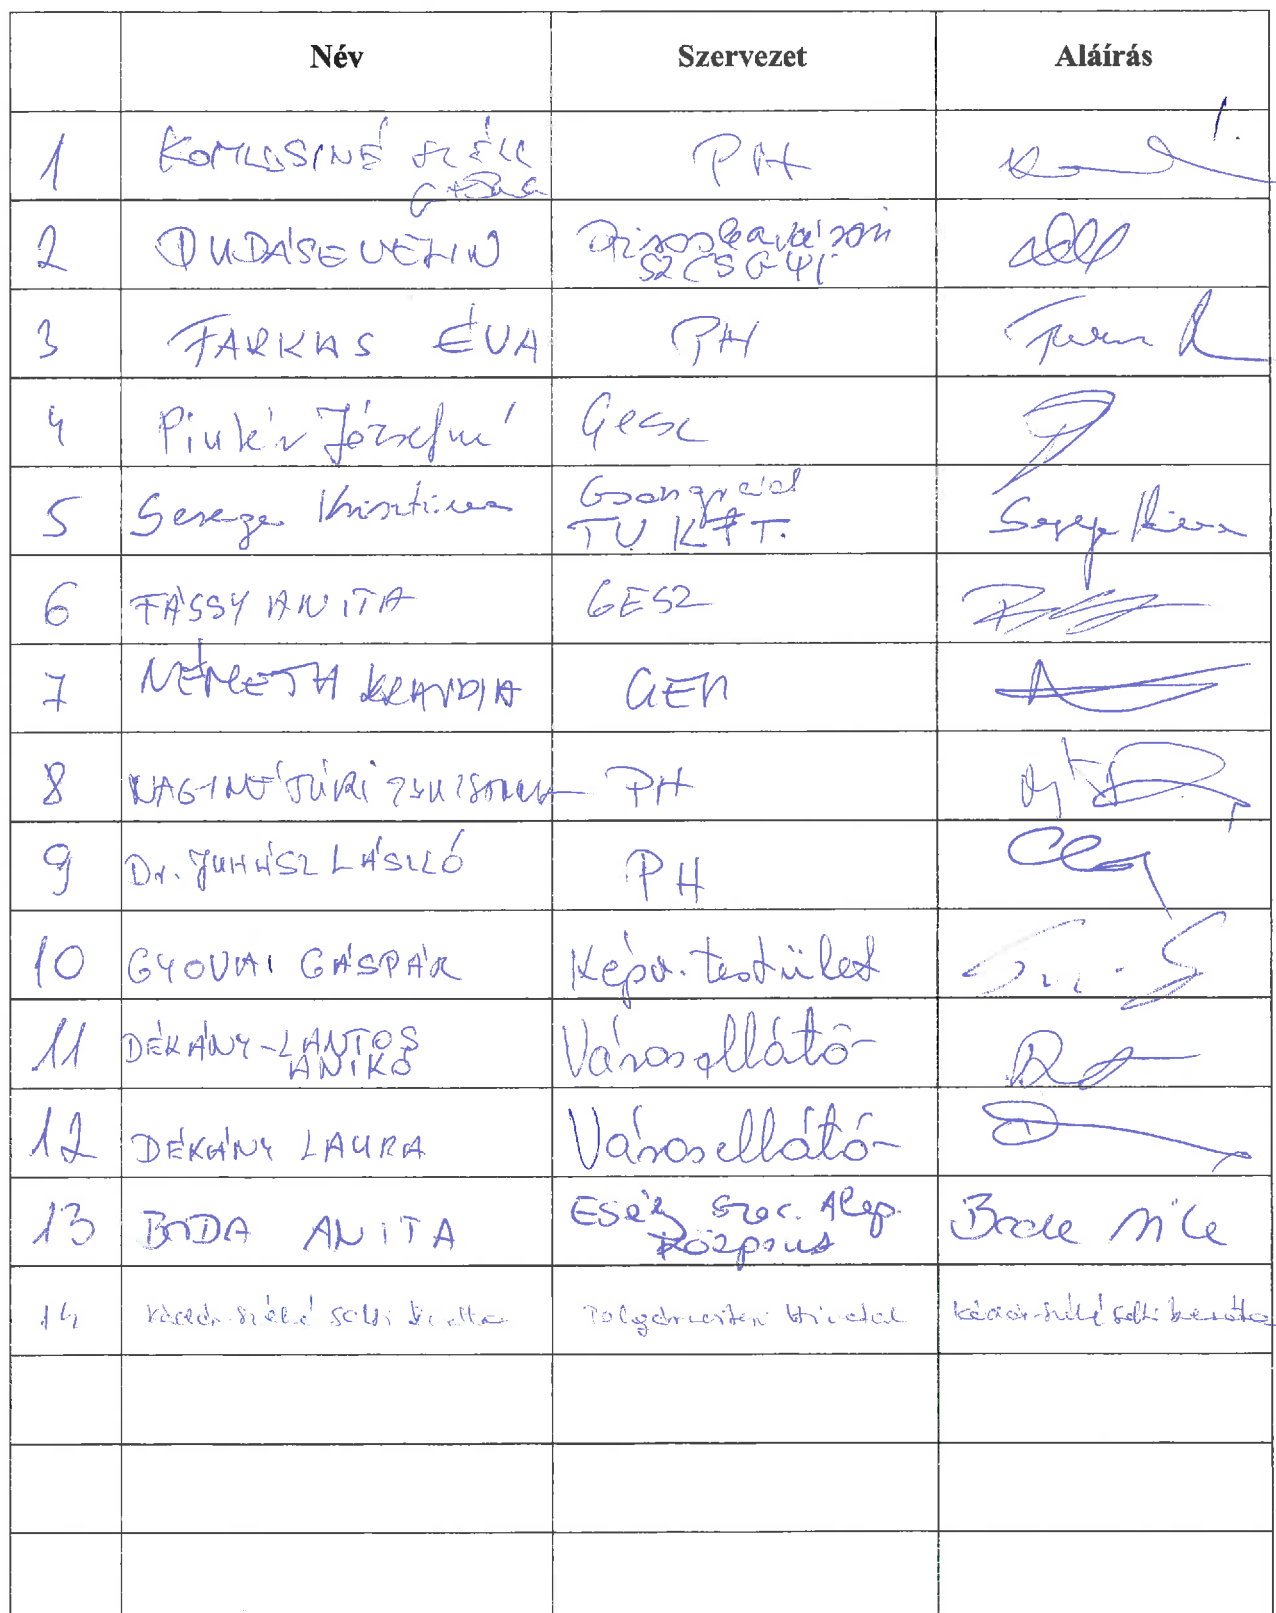 Név Szervezet Aláírás
1 KOMLÓSINÉ SZÉLL PH
2 DUDÁS EVELIN SZCSGYI
3 FARKAS ÉVA PH
4 Pintér Józsefné Gesz
5 Serege Krisztina Csongrád
TV KFT.
6 FÁSSY ANITA GESZ
7 NÉMETH KLAUDIA GEN
8 NAGYNÉ TÚRI ZSUZSANNA PH
9 Dr. JUHÁSZ LÁSZLÓ PH
10 GYOVAI GÁSPÁR Képv. testület
11 DÉKÁNY-LANTOS Városellátó
ANIKÓ
12 DÉKÁNY LAURA Városellátó
13 BODA ANITA Esély Szoc. Alap.
Központ
14 Polgármesteri Hivatal